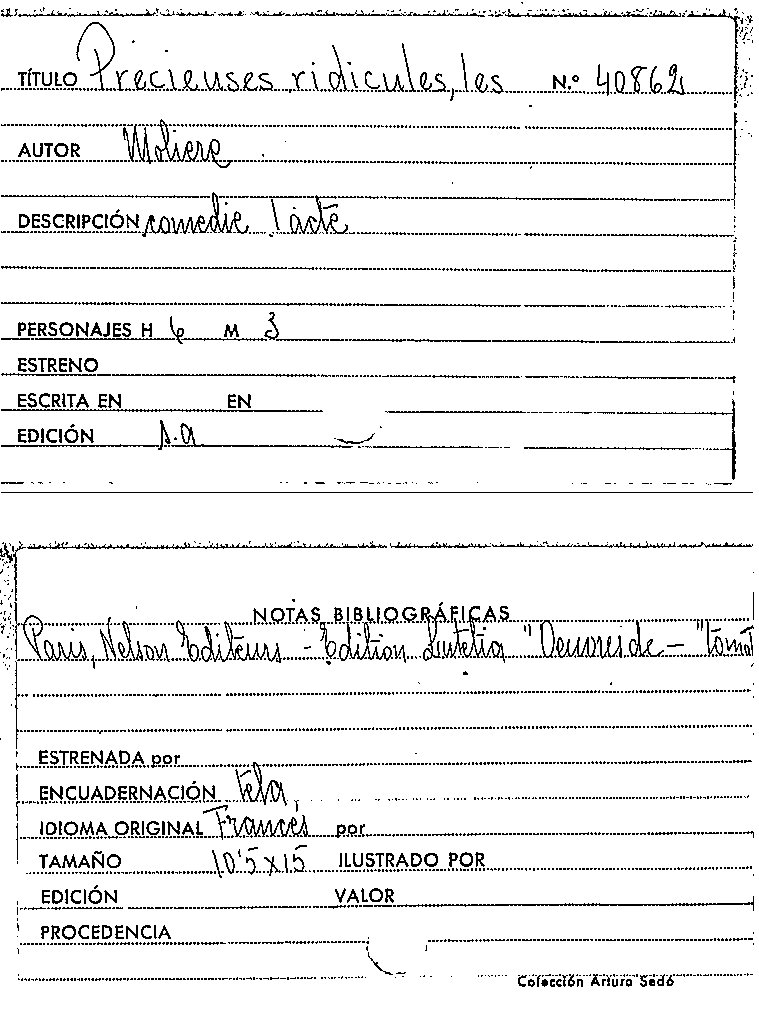 TÍTULO Precieuses ridicules, les N.º 40862
AUTOR Moliere
DESCRIPCIÓN comedie 1 acte
PERSONAJES H 6 M 3
ESTRENO
ESCRITA EN EN
EDICIÓN s.a
NOTAS BIBLIOGRÁFICAS
Paris, Nelson Editeurs - Edition Lutetia "Oeuvres de - "tom
ESTRENADA por
ENCUADERNACIÓN tela
IDIOMA ORIGINAL Francés por
TAMAÑO 10'5x15 ILUSTRADO POR
EDICIÓN VALOR
PROCEDENCIA
Colección Arturo Sedó